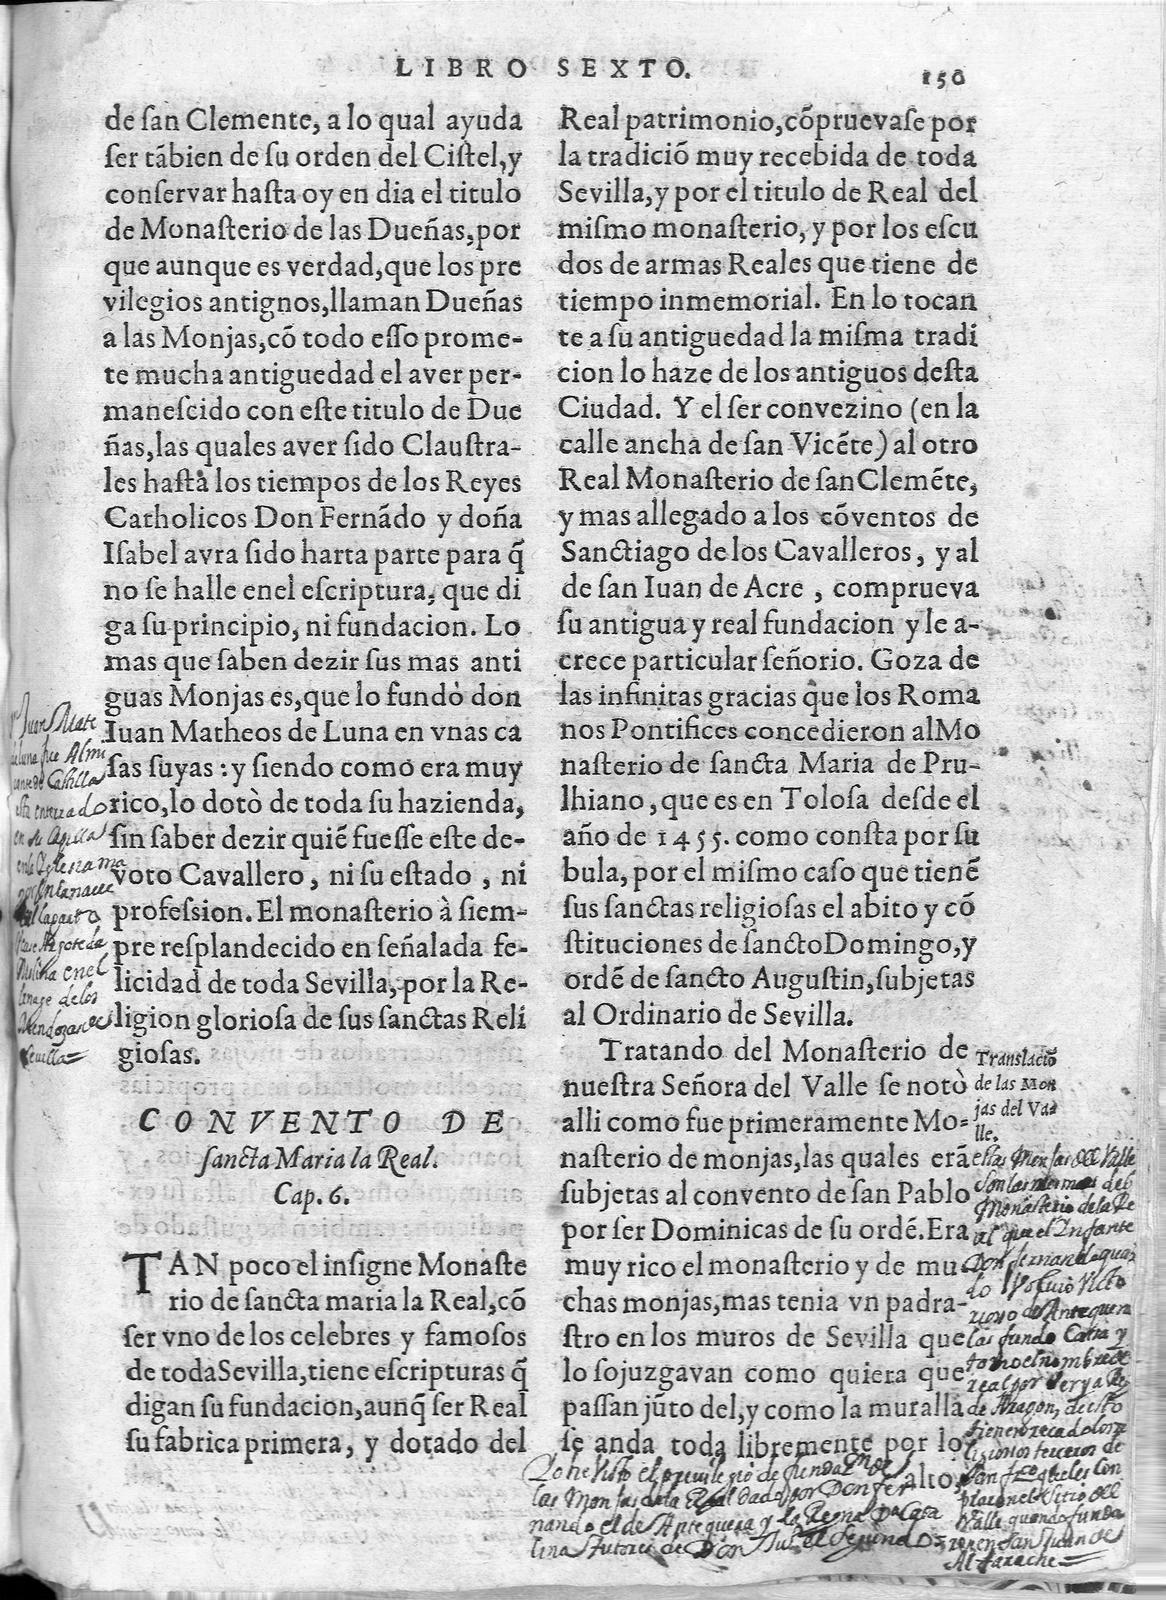 LIBRO SEXTO.
150
de ſan Clemente, a lo qual ayuda
ſer tãbien de ſu orden del Ciſtel, y
conſervar haſta oy en dia el titulo
de Monaſterio de las Dueñas, por
que aunque es verdad, que los pre
vilegios antignos, llaman Dueñas
a las Monjas, cõ todo eſſo prome-
te mucha antiguedad el aver per-
maneſcido con eſte titulo de Due
ñas, las quales aver ſido Clauſtra-
les haſta los tiempos de los Reyes
Catholicos Don Fernãdo y doña
Iſabel avra ſido harta parte para q̃
no ſe halle enel eſcriptura, que di
ga ſu principio, ni fundacion. Lo
mas que ſaben dezir ſus mas anti
guas Monjas es, que lo fundò don
Iuan Matheos de Luna en vnas ca
ſas ſuyas : y ſiendo como era muy
rico, lo dotò de toda ſu hazienda,
ſin ſaber dezir quiẽ fueſſe eſte de-
voto Cavallero, ni ſu eſtado, ni
profeſsion. El monaſterio à ſiem-
pre reſplandecido en ſeñalada fe-
licidad de toda Sevilla, por la Re-
ligion glorioſa de ſus ſanctas Reli
gioſas.
CONVENTO DE
ſancta Maria la Real.
Cap. 6.
TAN poco el inſigne Monaſte
rio de ſancta maria la Real, cõ
ſer vno de los celebres y famoſos
de toda Sevilla, tiene eſcripturas q̃
digan ſu fundacion, aunq̃ ſer Real
ſu fabrica primera, y dotado del
Real patrimonio, cõpruevaſe por
la tradiciõ muy recebida de toda
Sevilla, y por el titulo de Real del
miſmo monaſterio, y por los eſcu
dos de armas Reales que tiene de
tiempo inmemorial. En lo tocan
te a ſu antiguedad la miſma tradi
cion lo haze de los antiguos deſta
Ciudad. Y el ſer convezino (en la
calle ancha de ſan Vicẽte) al otro
Real Monaſterio de ſan Clemẽte,
y mas allegado a los cõventos de
Sanctiago de los Cavalleros, y al
de ſan Iuan de Acre, comprueva
ſu antigua y real fundacion y le a-
crece particular ſeñorio. Goza de
las infinitas gracias que los Roma
nos Pontifices concedieron al Mo
naſterio de ſancta Maria de Pru-
lhiano, que es en Toloſa deſde el
año de 1455. como conſta por ſu
bula, por el miſmo caſo que tienẽ
ſus ſanctas religioſas el abito y cõ
ſtituciones de ſancto Domingo, y
ordẽ de ſancto Auguſtin, ſubjetas
al Ordinario de Sevilla.
Tratando del Monaſterio de
nueſtra Señora del Valle ſe notò
alli como fue primeramente Mo-
naſterio de monjas, las quales erã
ſubjetas al convento de ſan Pablo
por ſer Dominicas de ſu ordẽ. Era
muy rico el monaſterio y de mu-
chas monjas, mas tenia vn padra-
ſtro en los muros de Sevilla que
lo ſojuzgavan como quiera que
paſſan jũto del, y como la muralla
ſe anda toda libremente por lo
alto,
Tranſlaciõ
de las Mon
jas del Va-
lle.
Juan Mate
de luna fue Almi
rante de Caſtilla
eſta enterrado
en ſu Capilla
en la Igleſia ma
el lagarto
en el
linage de los
Sevilla
eſtas Monjas del Valle
ſon las mermas del
Monaſterio de la Re
al que el Infante
Don fernando qua
do
de Antequera
las fundo
de Aragon,
terceros de
Valle quando funda
ron en San Juan de
Alfarache
Yo he viſto el previlegio de
las Monjas de la Real dado por Don fer
nando el de Antequera y la Reyna Da Cata
lina tutores de Don Juo el Segundo